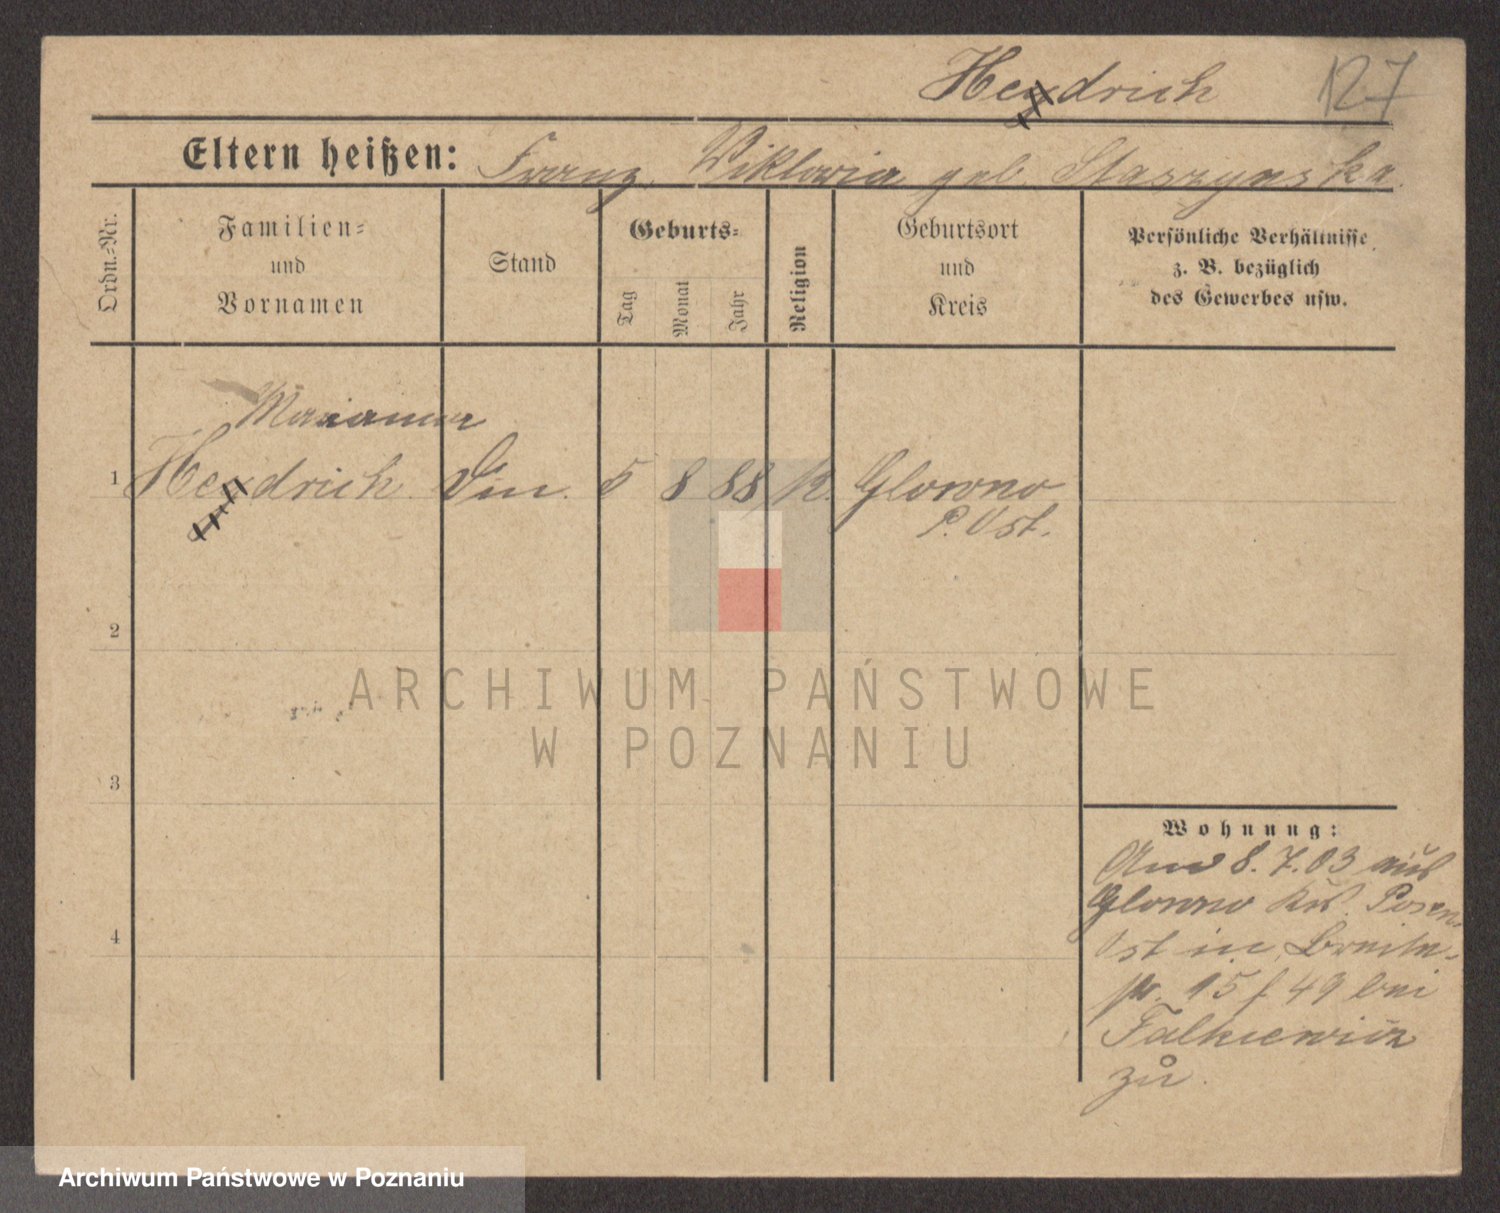 Heydrich 127
Eltern heißen: Franz, Viktoria geb. Staszynska.
Ordn.-Nr.
Familien-
und
Vornamen
Stand
Geburts-
Tag
Monat
Jahr
Religion
Geburtsort
und
Kreis
Persönliche Verhältnisse
z. B. bezüglich
des Gewerbes usw.
Marianna
1 Heydrich Din. 5 8 88 K. Glowno
P. Ost.
2
3
4
Wohnung:
Am 8.7.03 aus
Glowno Krs. Posen
Ost in Breite-
str. 15 f 49 bei
Falkiewicz
zu.
ARCHIWUM PAŃSTWOWE
W POZNANIU
Archiwum Państwowe w Poznaniu